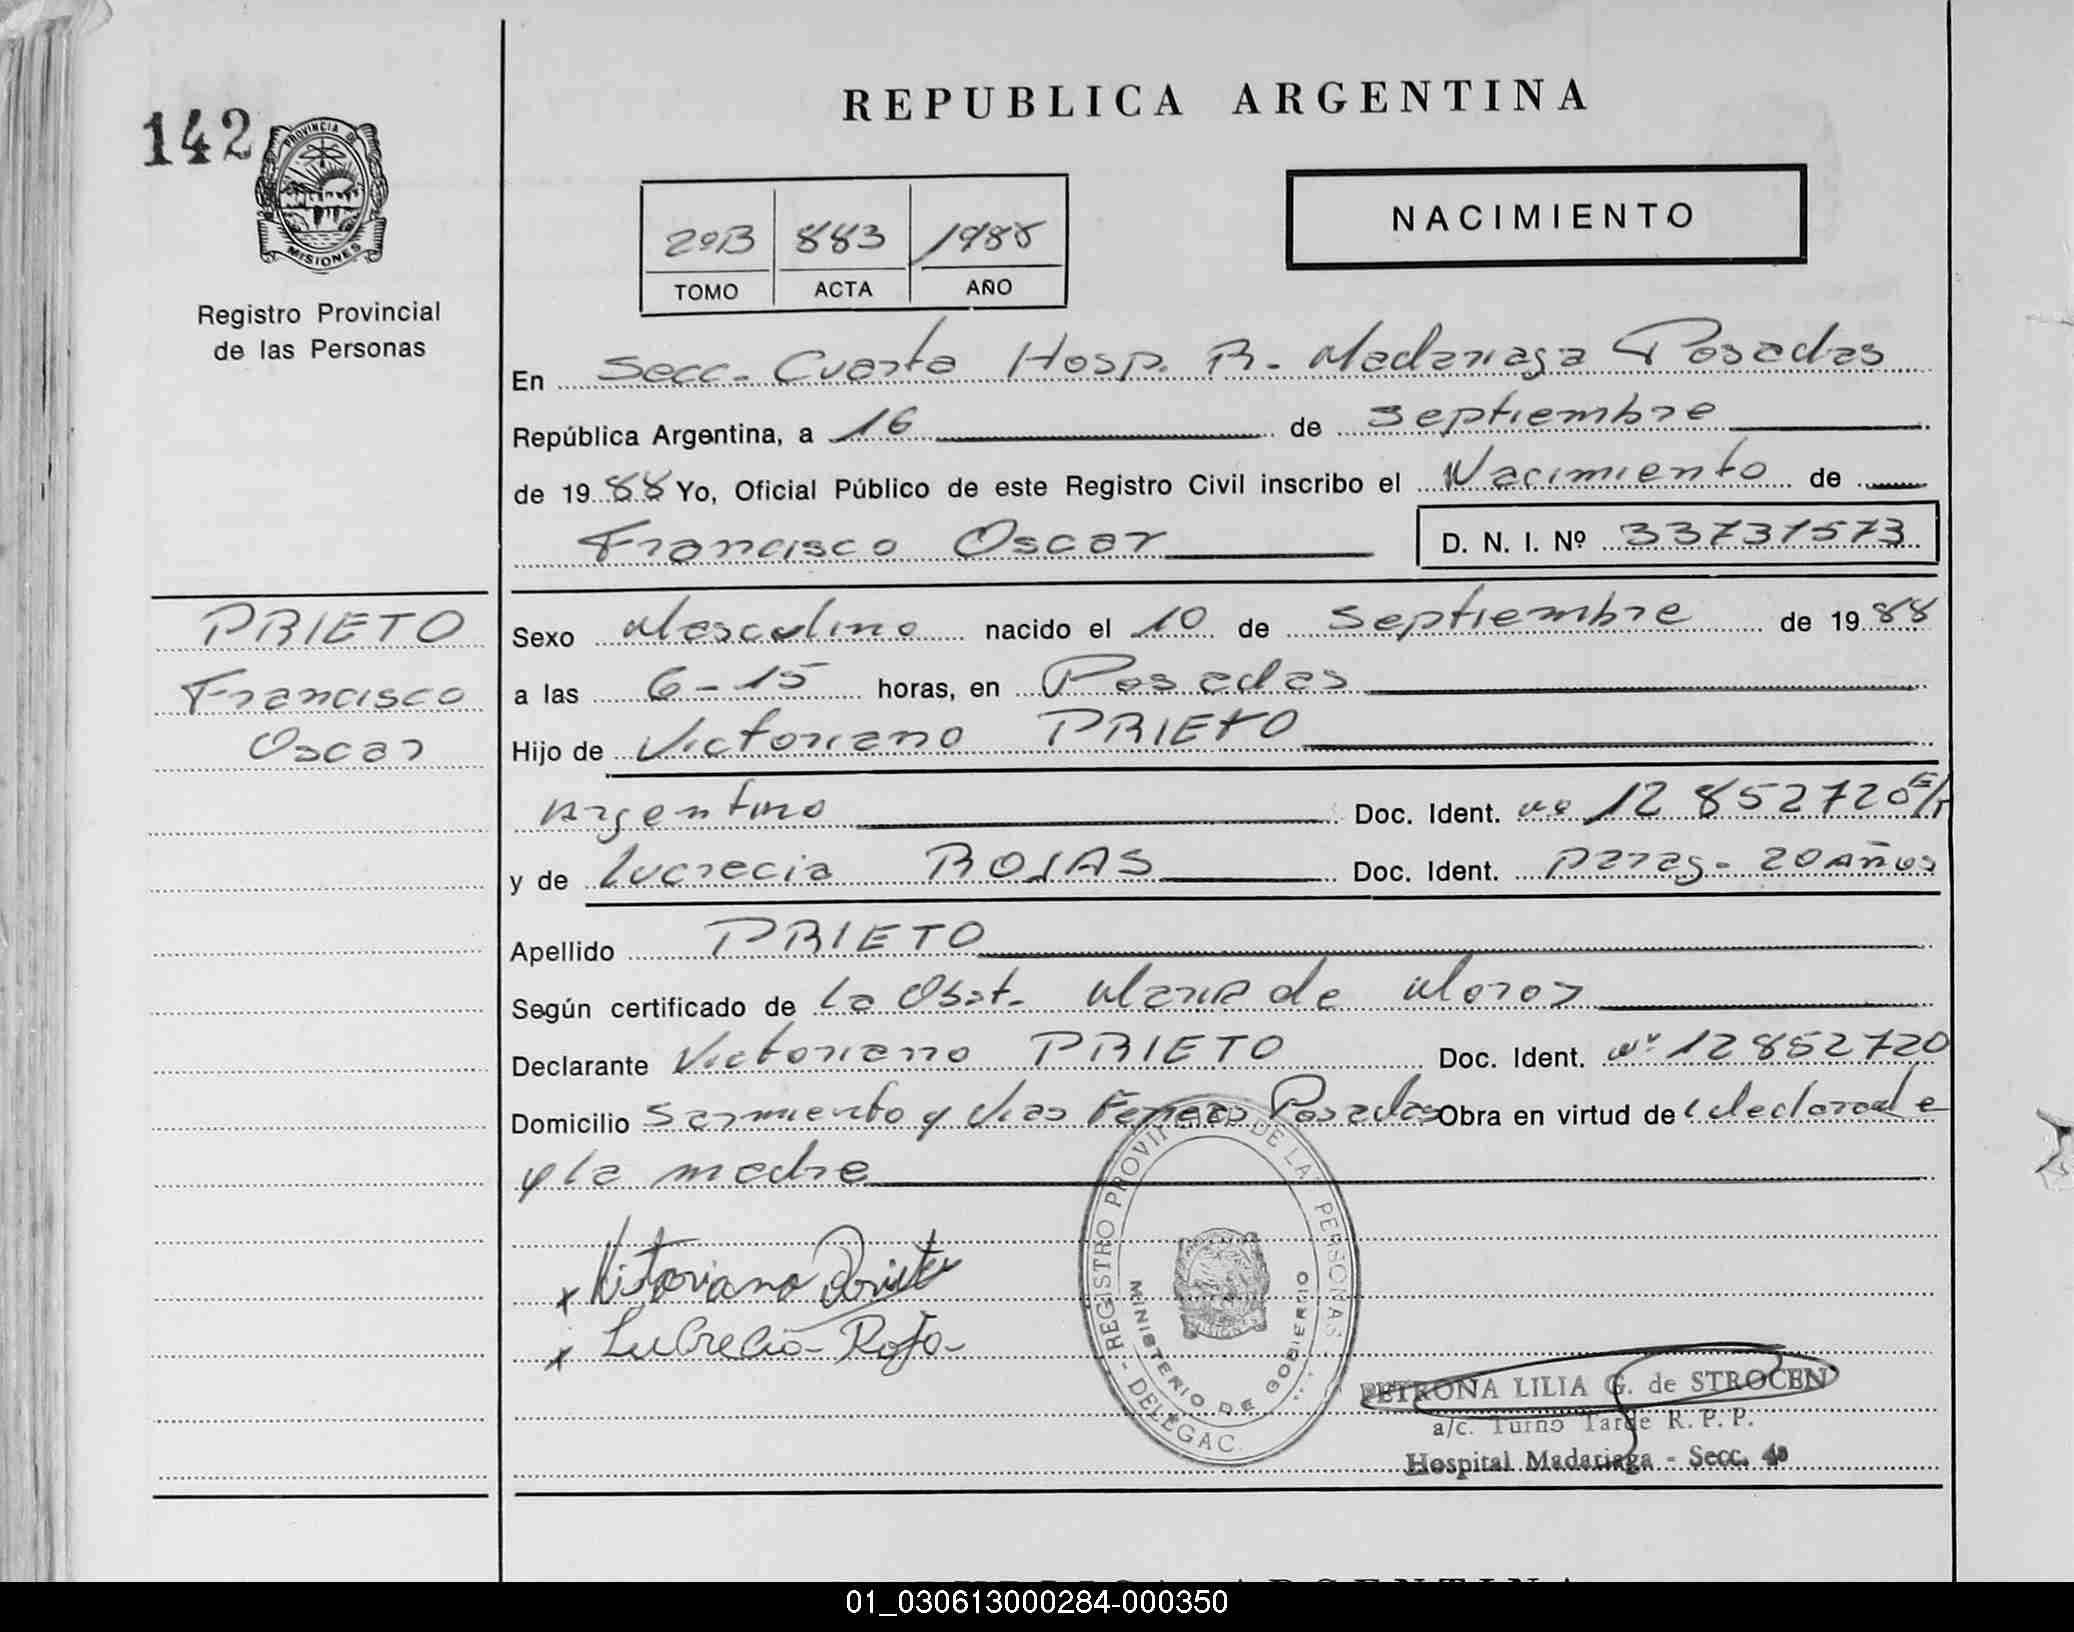 REPUBLICA ARGENTINA
142
PROVINCIA DE
MISIONES
Registro Provincial
de las Personas
NACIMIENTO
2ºB 883 1988
TOMO ACTA AÑO
En Secc. Cuarta Hosp. R. Madariaga Posadas
República Argentina, a 16 de septiembre
de 1988 Yo, Oficial Público de este Registro Civil inscribo el Nacimiento de
Francisco Oscar D. N. I. Nº 33737573
PRIETO
Francisco
Oscar
Sexo Masculino nacido el 10 de septiembre de 1988
a las 6-15 horas, en Posadas
Hijo de Victoriano PRIETO
Argentino Doc. Ident. nº 12 852720
y de Lucrecia ROJAS Doc. Ident. Parag- 20 Años
Apellido PRIETO
Según certificado de La Obst. Maria de Moroz
Declarante Victoriano PRIETO Doc. Ident. nº 12852720
Domicilio Sarmiento y Vias Ferreas Posadas Obra en virtud de declarade
y la madre
Vitoriano Prieto
Lucrecia Roja
REGISTRO PROVI DE LAS PERSONAS - DELEGAC.
MINISTERIO DE GOBIERNO
PETRONA LILIA G. de STROCEN
a/c. Turno Tarde R. P. P.
Hospital Madariaga - Secc. 4a
01_030613000284-000350